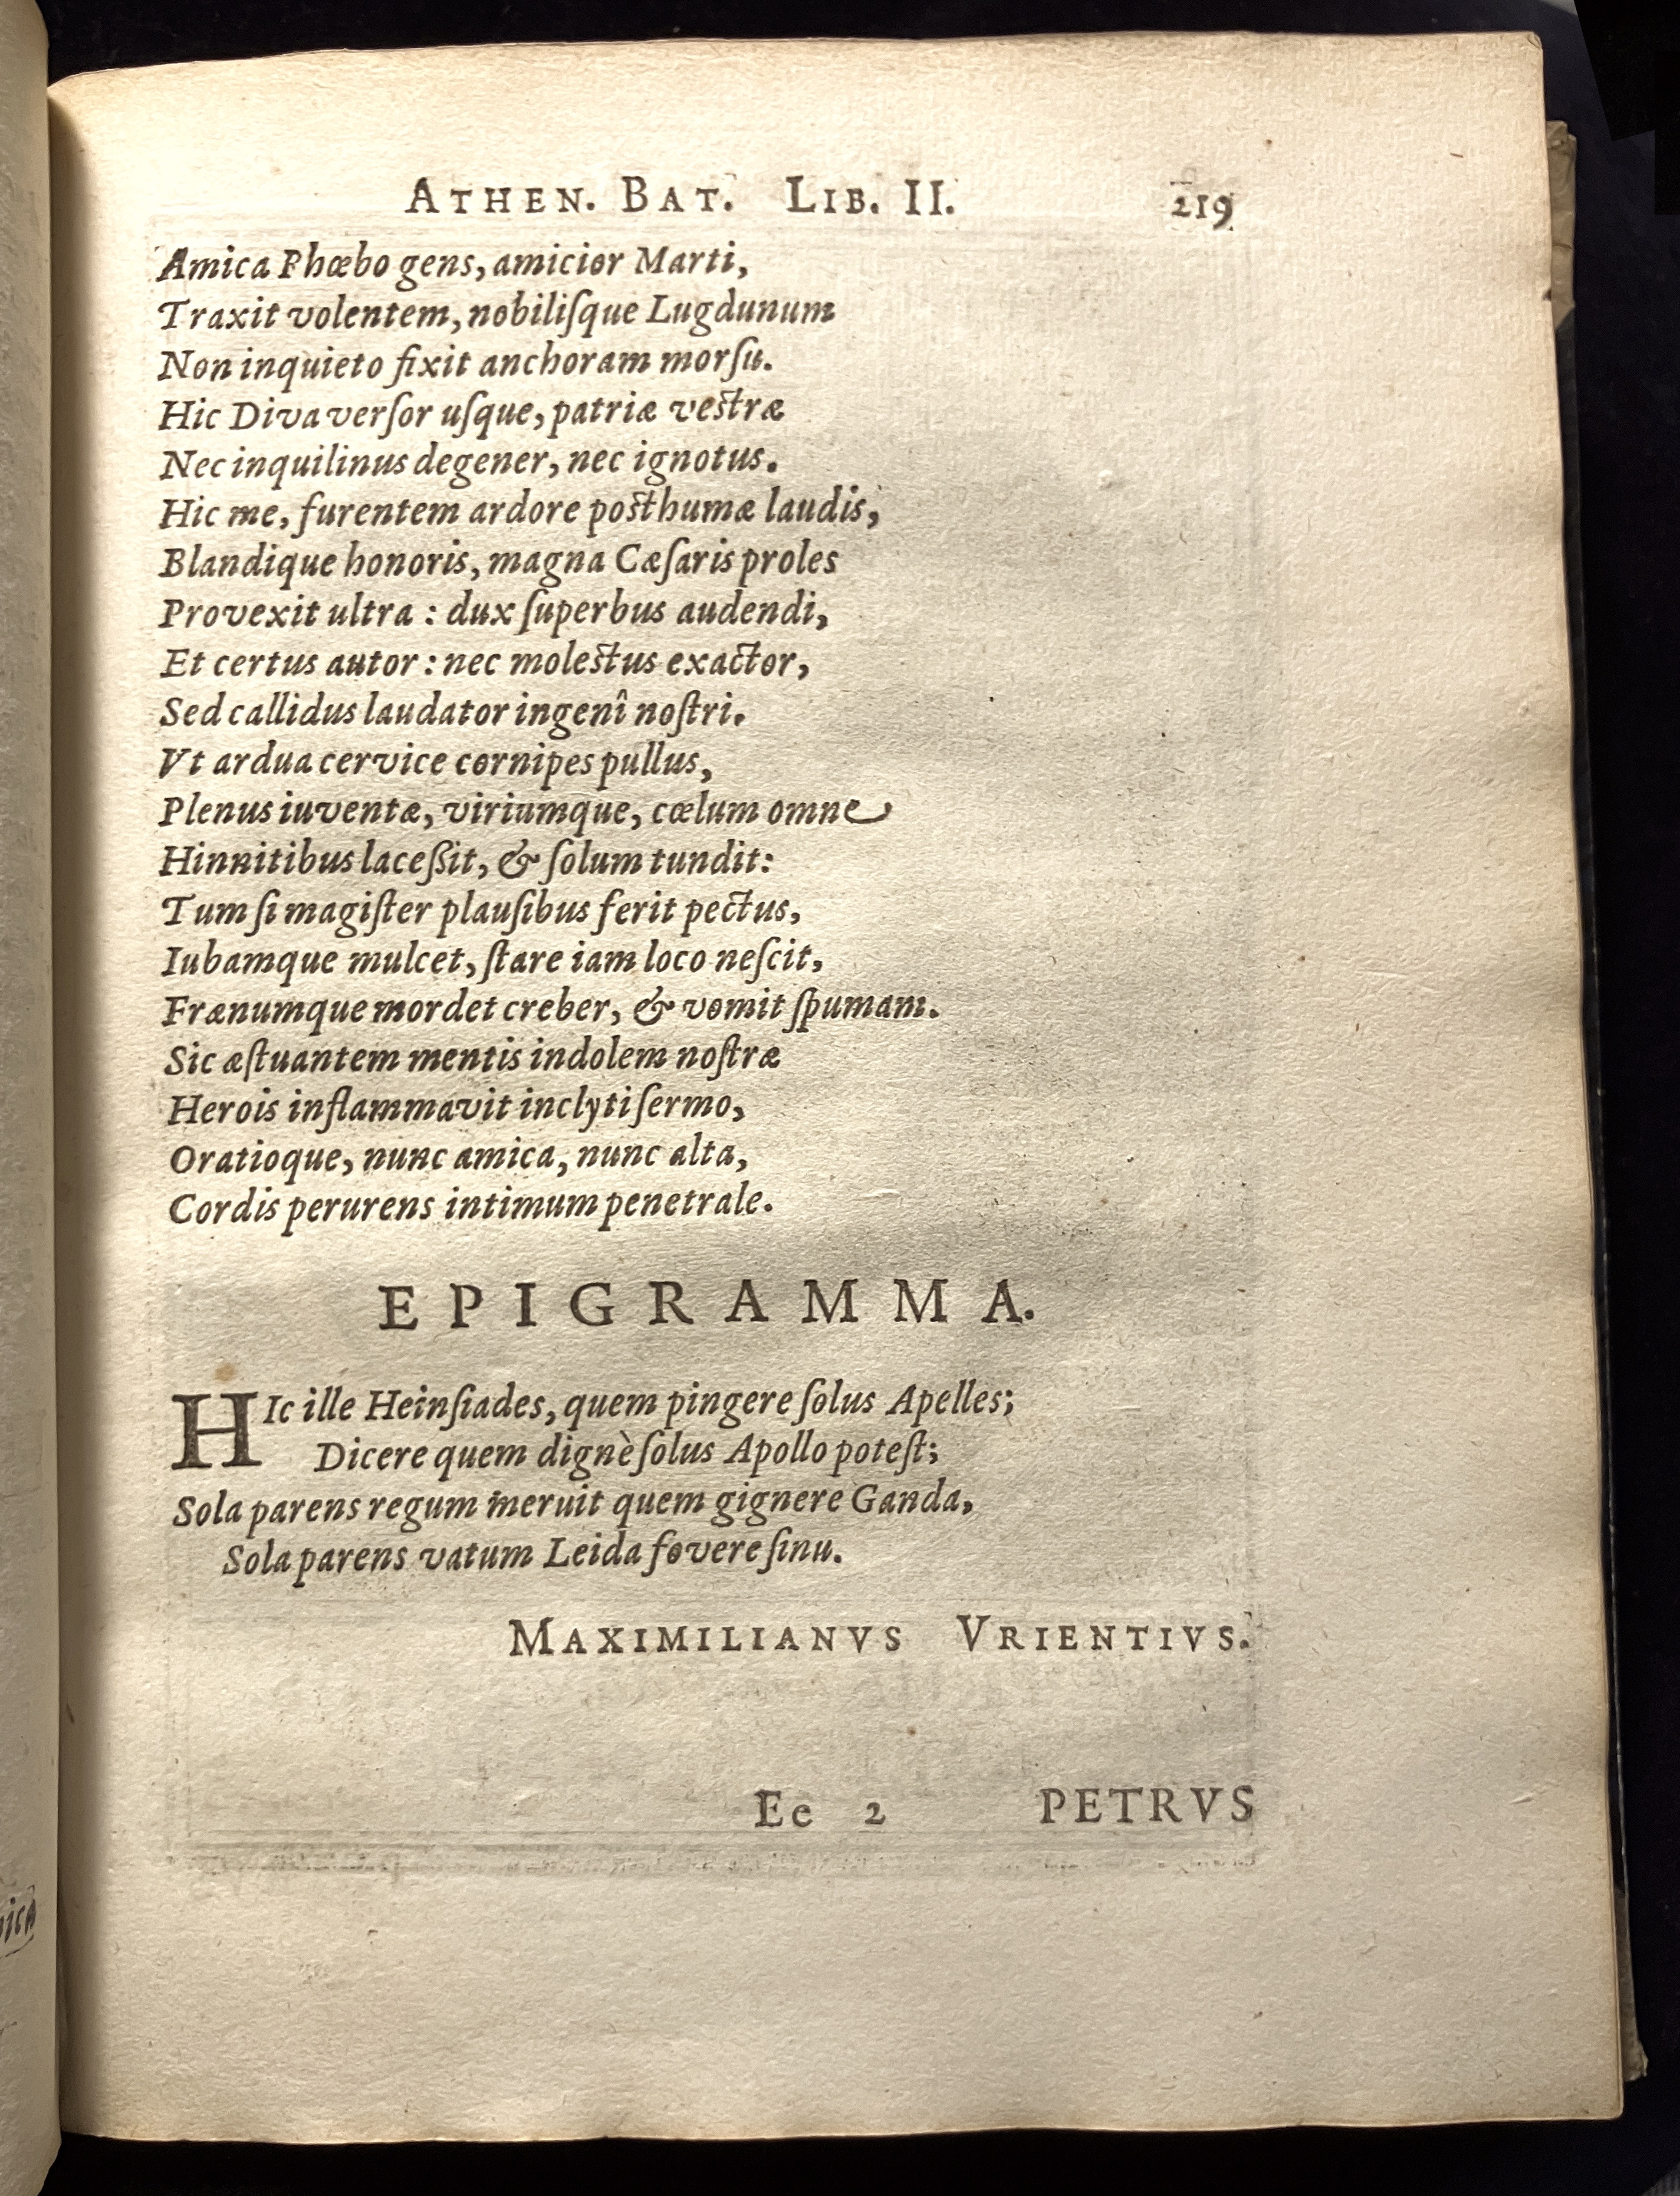 ATHEN. BAT. LIB. II. 219
Amica Phœbo gens, amicior Marti,
Traxit volentem, nobiliſque Lugdunum
Non inquieto fixit anchoram morſu.
Hic Diva verſor uſque, patriæ veſtræ
Nec inquilinus degener, nec ignotus.
Hic me, furentem ardore poſthumæ laudis,
Blandique honoris, magna Cæſaris proles
Provexit ultra : dux ſuperbus audendi,
Et certus autor : nec moleſtus exactor,
Sed callidus laudator ingenî noſtri.
Vt ardua cervice cornipes pullus,
Plenus iuventæ, viriumque, cœlum omne
Hinnitibus laceßit, & ſolum tundit:
Tum ſi magiſter plauſibus ferit pectus,
Iubamque mulcet, ſtare iam loco neſcit,
Frænumque mordet creber, & vomit ſpumam.
Sic æſtuantem mentis indolem noſtræ
Herois inflammavit inclyti ſermo,
Oratioque, nunc amica, nunc alta,
Cordis perurens intimum penetrale.
EPIGRAMMA.
HIc ille Heinſiades, quem pingere ſolus Apelles;
Dicere quem dignè ſolus Apollo poteſt;
Sola parens regum meruit quem gignere Ganda,
Sola parens vatum Leida fovere ſinu.
MAXIMILIANVS VRIENTIVS.
Ee 2 PETRVS